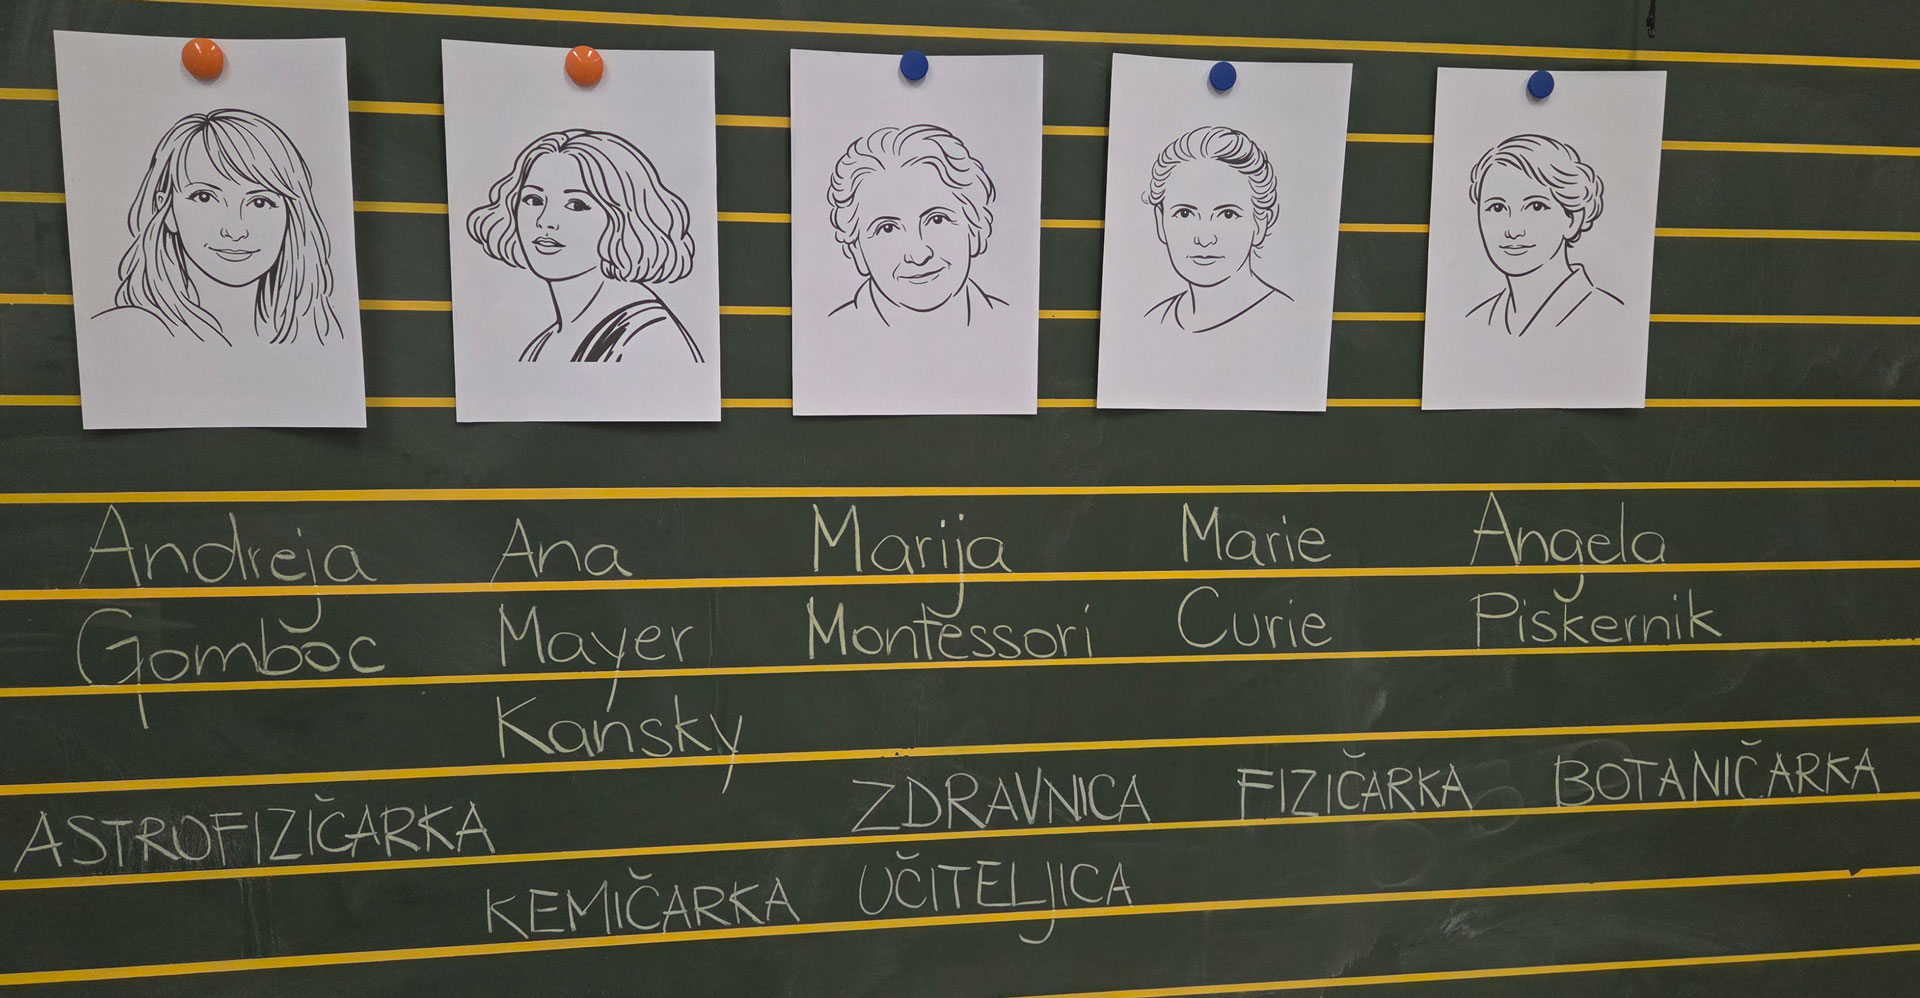 Andreja
Gomboc
Ana
Mayer
Kansky
Marija
Montessori
Marie
Curie
Angela
Piskernik
ASTROFIZIČARKA
KEMIČARKA
ZDRAVNICA
UČITELJICA
FIZIČARKA
BOTANIČARKA